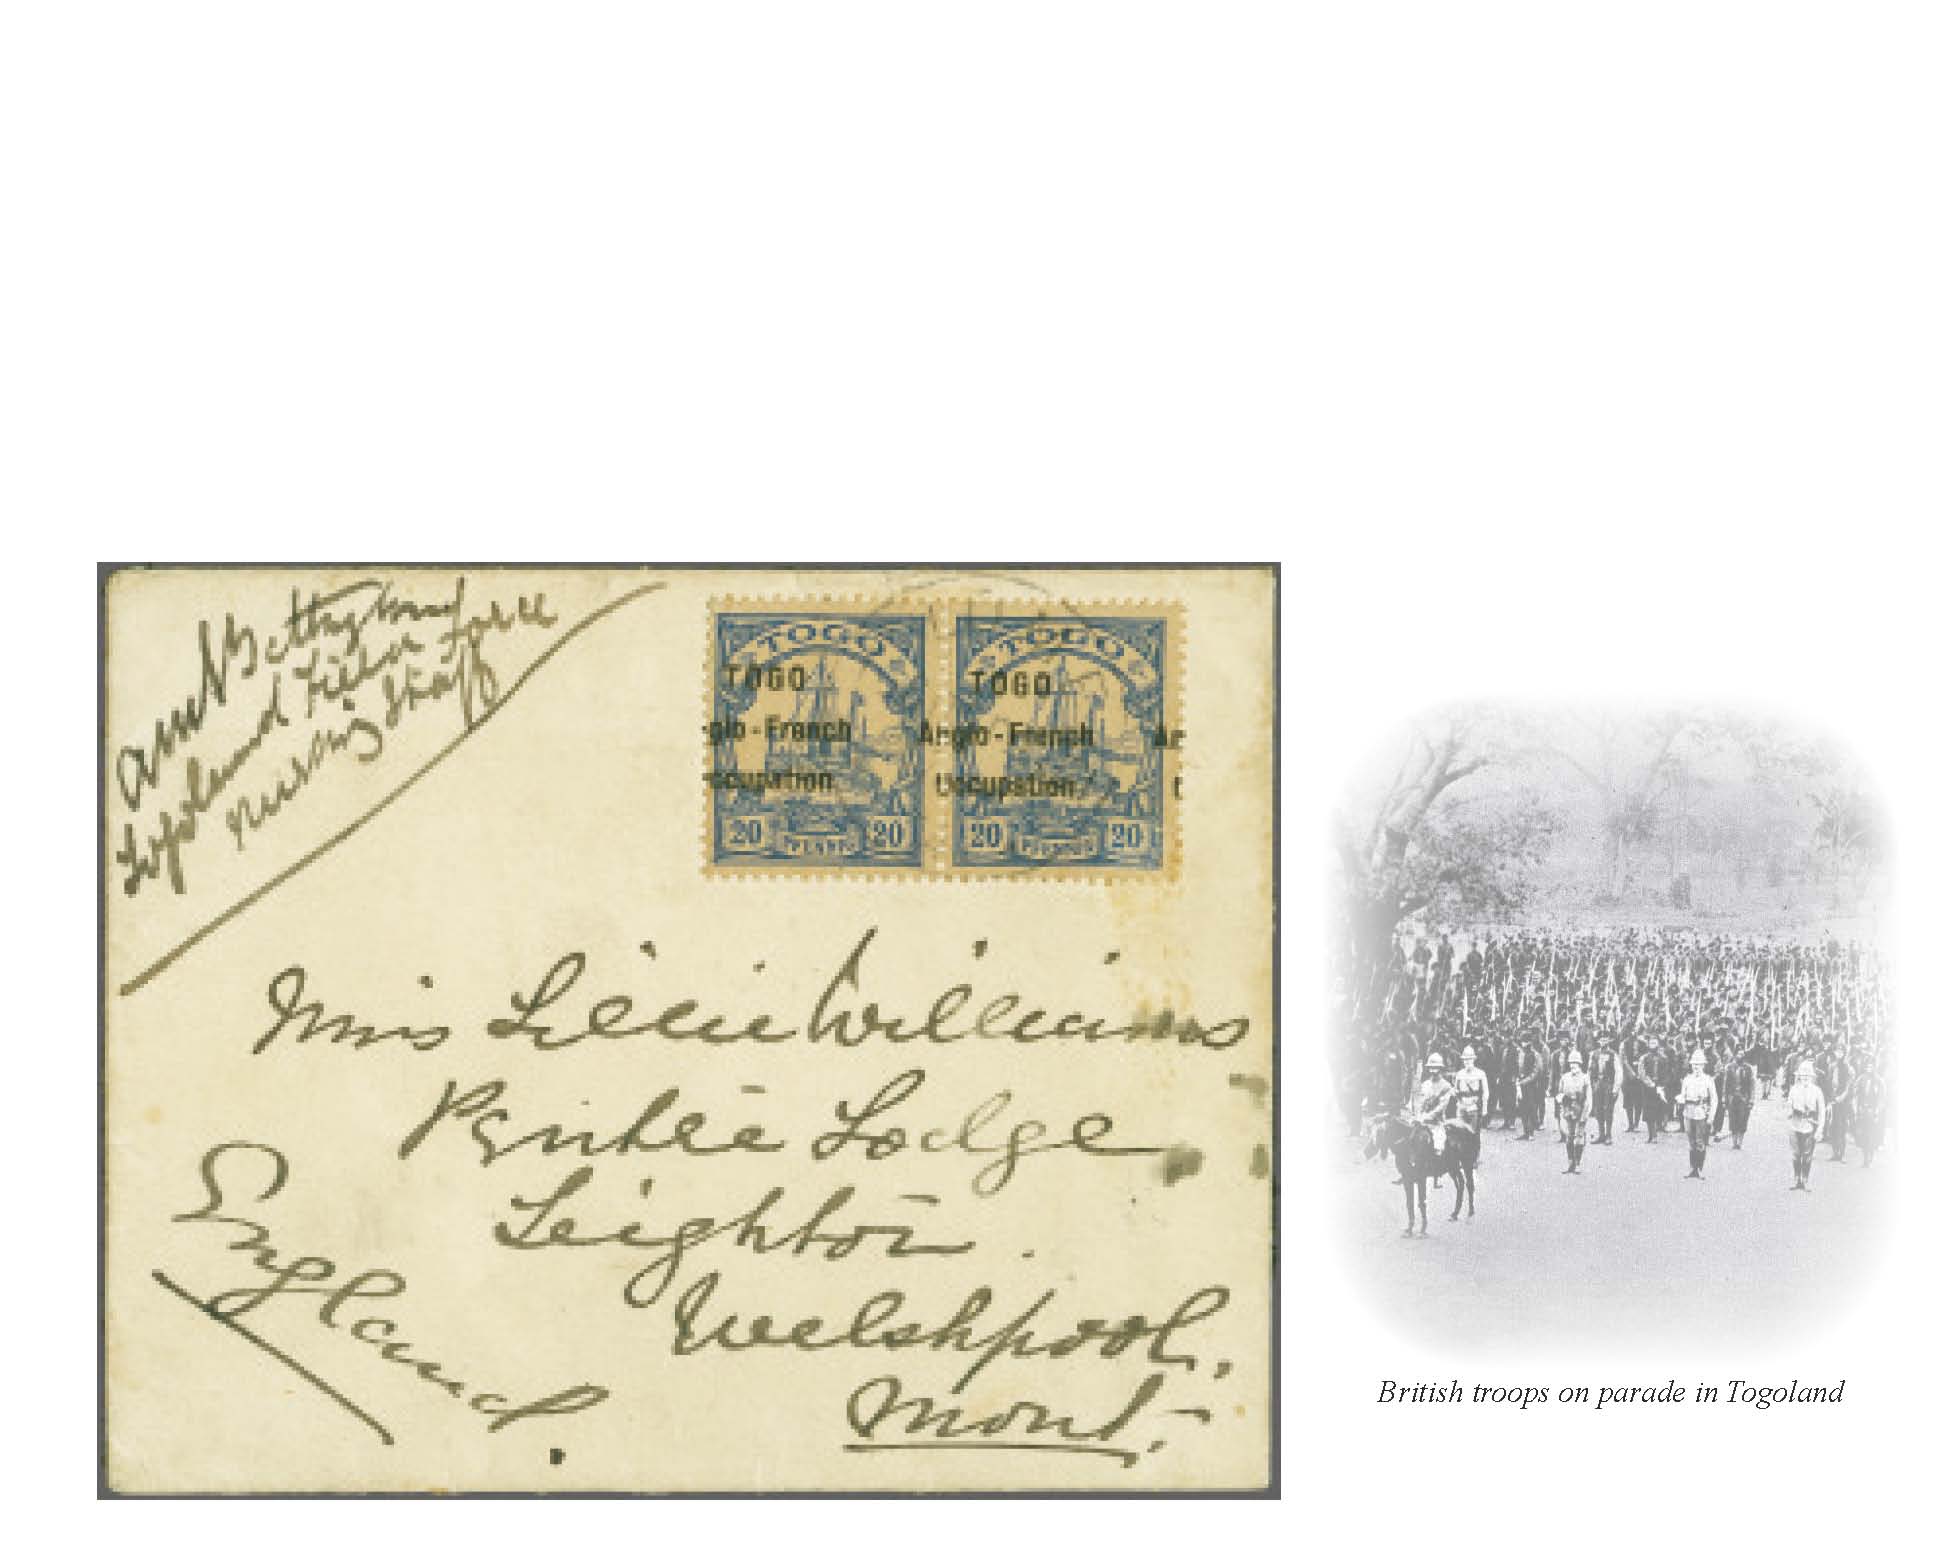 Togoland Field Force
Nursing Staff
TOGO TOGO
TOGO TOGO
glo-French Anglo-French An
ccupation Occupation O
20 20 20 20
PFENNIG PFENNIG
Miss Lillie Williams
Lodge
Leighton.
Welshpool,
Mont.
England.
British troops on parade in Togoland